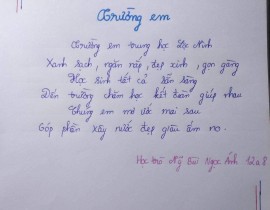 Trường em
Trường em trung học Lộc Ninh
Xanh sạch, ngăn nắp, đẹp xinh, gọn gàng
Học sinh tất cả sẵn sàng
Đến trường chăm học kết đoàn giúp nhau
Chúng em mơ ước mai sau
Góp phần xây nước đẹp giàu ấm no.
Học trò Mỹ Bùi Ngọc Ánh 12a8